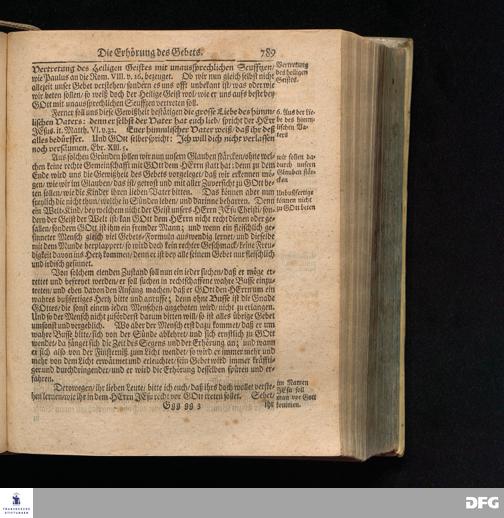 Die Erhörung des Gebets. 789
Vertretung des Heiligen Geistes mit unaussprechlichen Seuffzen/
wie Paulus an die Rom. VIII. v. 16. bezeuget. Ob wir nun gleich selbst nicht
allezeit unser Gebet verstehen/sondern es uns offt unbekant ist/ was oder wie
wir beten sollen/ so weiß doch der Heilige Geist wol/wie er uns aufs beste bey
GOtt mit unaussprechlichen Seuffzen vertreten soll.
Vertretung
des heiligen
Geistes.
Ferner soll uns diese Gewißheit bestätigen die grosse Liebe des himm-
lischen Vaters: denn er selbst der Vater hat euch lieb/ spricht der HErr
JEsus. it. Matth. VI. v. 32. Euer himmlischer Vater weiß/ daß ihr deß
alles bedürffet. Und GOtt selber spricht: Ich will dich nicht verlassen
noch versäumen. Ebr. XIII. 5.
6. Aus der Lie-
be des himm-
lischen Va-
ters
Aus solchen Gründen sollen wir nun unsern Glauben stärcken/ohne wel-
chen keine rechte Gemeinschafft mit GOtt dem HErrn statt hat: denn zu dem
Ende wird uns die Gewißheit des Gebets vorgeleget/ daß wir erkennen mö-
gen/ wie wir im Glauben/ das ist/ getrost und mit aller Zuversicht zu GOtt be-
ten sollen/wie die Kinder ihren lieben Vater bitten. Das können aber nun
freylich die nicht thun/ welche in Sünden leben/ und darinne beharren. Denn
ein Welt-Kind/ bey welchem nicht der Geist unsers HErrn JEsu Christi/ son-
dern der Geist der Welt ist/ kan GOtt dem HErrn nicht recht dienen oder ge-
fallen/ sondern GOtt ist ihm ein fremder Mann; und wenn ein fleischlich ge-
sinneter Mensch gleich viel Gebets-Formuln auswendig lernet/ und dieselbe
mit dem Munde herplappert/ so wird doch kein rechter Geschmack/ keine Freu-
digkeit davon ins Hertz kommen/ denn er ist bey alle seinem Gebet nur fleischlich
und irdisch gesinnet.
wir sollen da-
durch unsern
Glauben stär-
cken
Unbußfertige
können nicht
zu GOtt beten
Von solchem elenden Zustand soll nun ein ieder suchen/ daß er möge er-
rettet und befreyet werden/ er soll suchen in rechtschaffene wahre Busse einzu-
treten/ und eben davon den Anfang machen/ daß er GOtt den HErrn um ein
wahres bußfertiges Hertz bitte und anruffe; denn ohne Busse ist die Gnade
GOttes/ die sonst einem ieden Menschen angeboten wird/ nicht zu erlangen.
Und so der Mensch nicht zuförderst darum bitten will/ so ist alles übrige Gebet
umsonst und vergeblich. Wo aber der Mensch erst dazu kommet/ daß er um
wahre Busse bitte/ sich von der Sünde ablehret/ und sich ernstlich zu GOtt
wendet/ da fänget sich die Zeit des Segens und der Erhörung an; und wann
er sich also von der Finsterniß zum Licht wendet/ so wird er immer mehr und
mehr von dem Licht erwärmet und erleuchtet/ sein Gebet wird immer kräffti-
ger und durchdringender/ und er wird die Erhörung desselben spüren und er-
fahren.
Derowegen/ ihr lieben Leute/ bitte ich euch/ daß ihrs doch wollet verste-
hen lernen/wie ihr in dem HErrn JEsu recht vor GOtt treten sollet. Sehet/
im Namen
JEsu soll
man vor Gott
kommen.
Ggg gg 3 ihr
FRANCKESCHE
STIFTUNGEN
DFG